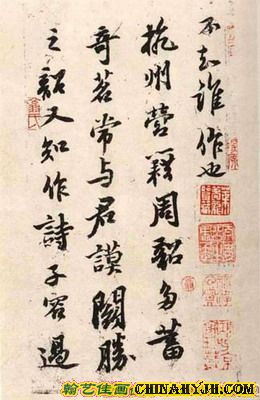 不知誰作也
杭州營籍周韶多蓄
奇茗常与君謨鬭勝
之韶又知作詩子容過
翰艺佳画 CHINAHYJH.COM